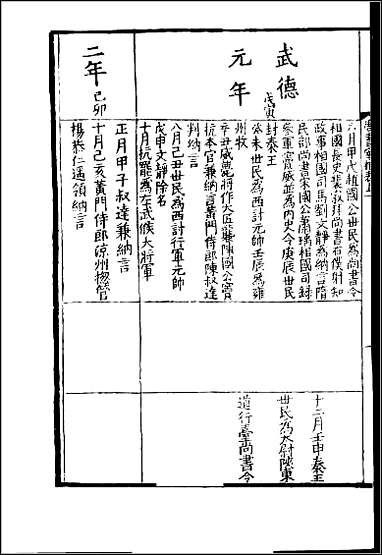 武德
元年
戊寅
六月甲戌趙國公世民為尚書令
相國長史裴寂為尚書右僕射知
政事相國司馬劉文靜為納言隋
民部尚書宋國公蕭瑀相國司錄
參軍竇威並為內史令庚辰世民
封秦王
癸未世民為西討元帥壬辰為雍
州牧
辛丑威薨將作大匠兼陳國公竇
抗本官兼納言黃門侍郎陳叔達
判納言
八月己丑世民為西討行軍元帥
戊申文靜除名
十月抗罷為左武候大將軍
十二月壬申秦王
世民為太尉陝東
道行臺尚書令
二年
己卯
正月甲子叔達兼納言
十月己亥黃門侍郎涼州揔管
楊恭仁遙領納言